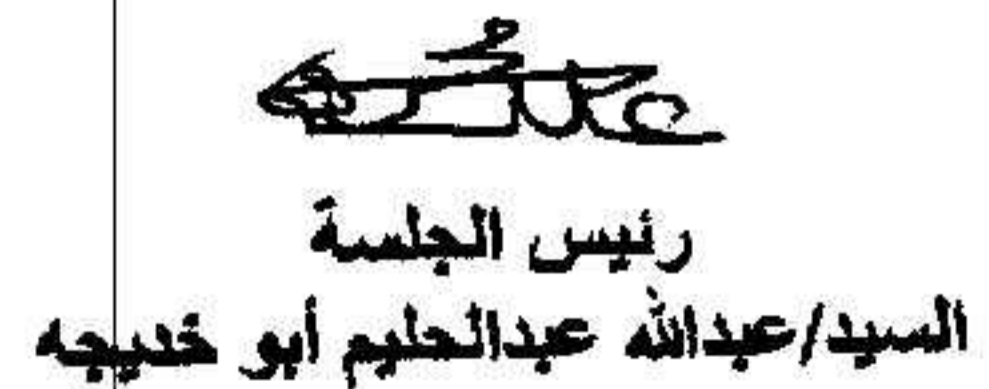 رئيس الجلسة
السيد/عبدالله عبدالحليم أبو خديجه